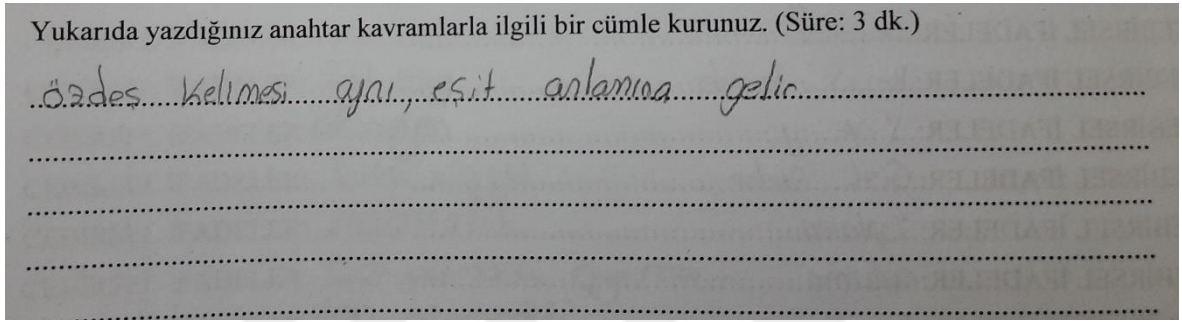 Yukarıda yazdığınız anahtar kavramlarla ilgili bir cümle kurunuz. (Süre: 3 dk.)
özdeş kelimesi aynı, eşit anlamına gelir